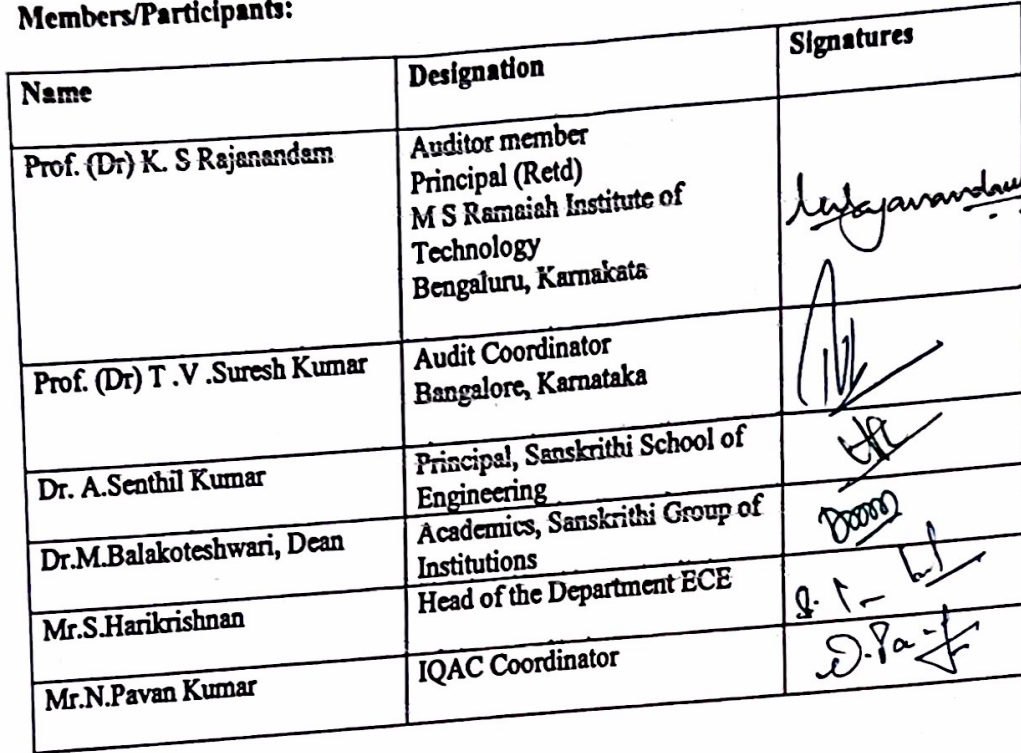 Members/Participants:
Name
Designation
Signatures
Prof. (Dr) K. S Rajanandam
Auditor member
Principal (Retd)
M S Ramaiah Institute of
Technology
Bengaluru, Karnakata
Prof. (Dr) T .V .Suresh Kumar
Audit Coordinator
Bangalore, Karnataka
Dr. A.Senthil Kumar
Principal, Sanskrithi School of
Engineering
Dr.M.Balakoteshwari, Dean
Academics, Sanskrithi Group of
Institutions
Mr.S.Harikrishnan
Head of the Department ECE
Mr.N.Pavan Kumar
IQAC Coordinator